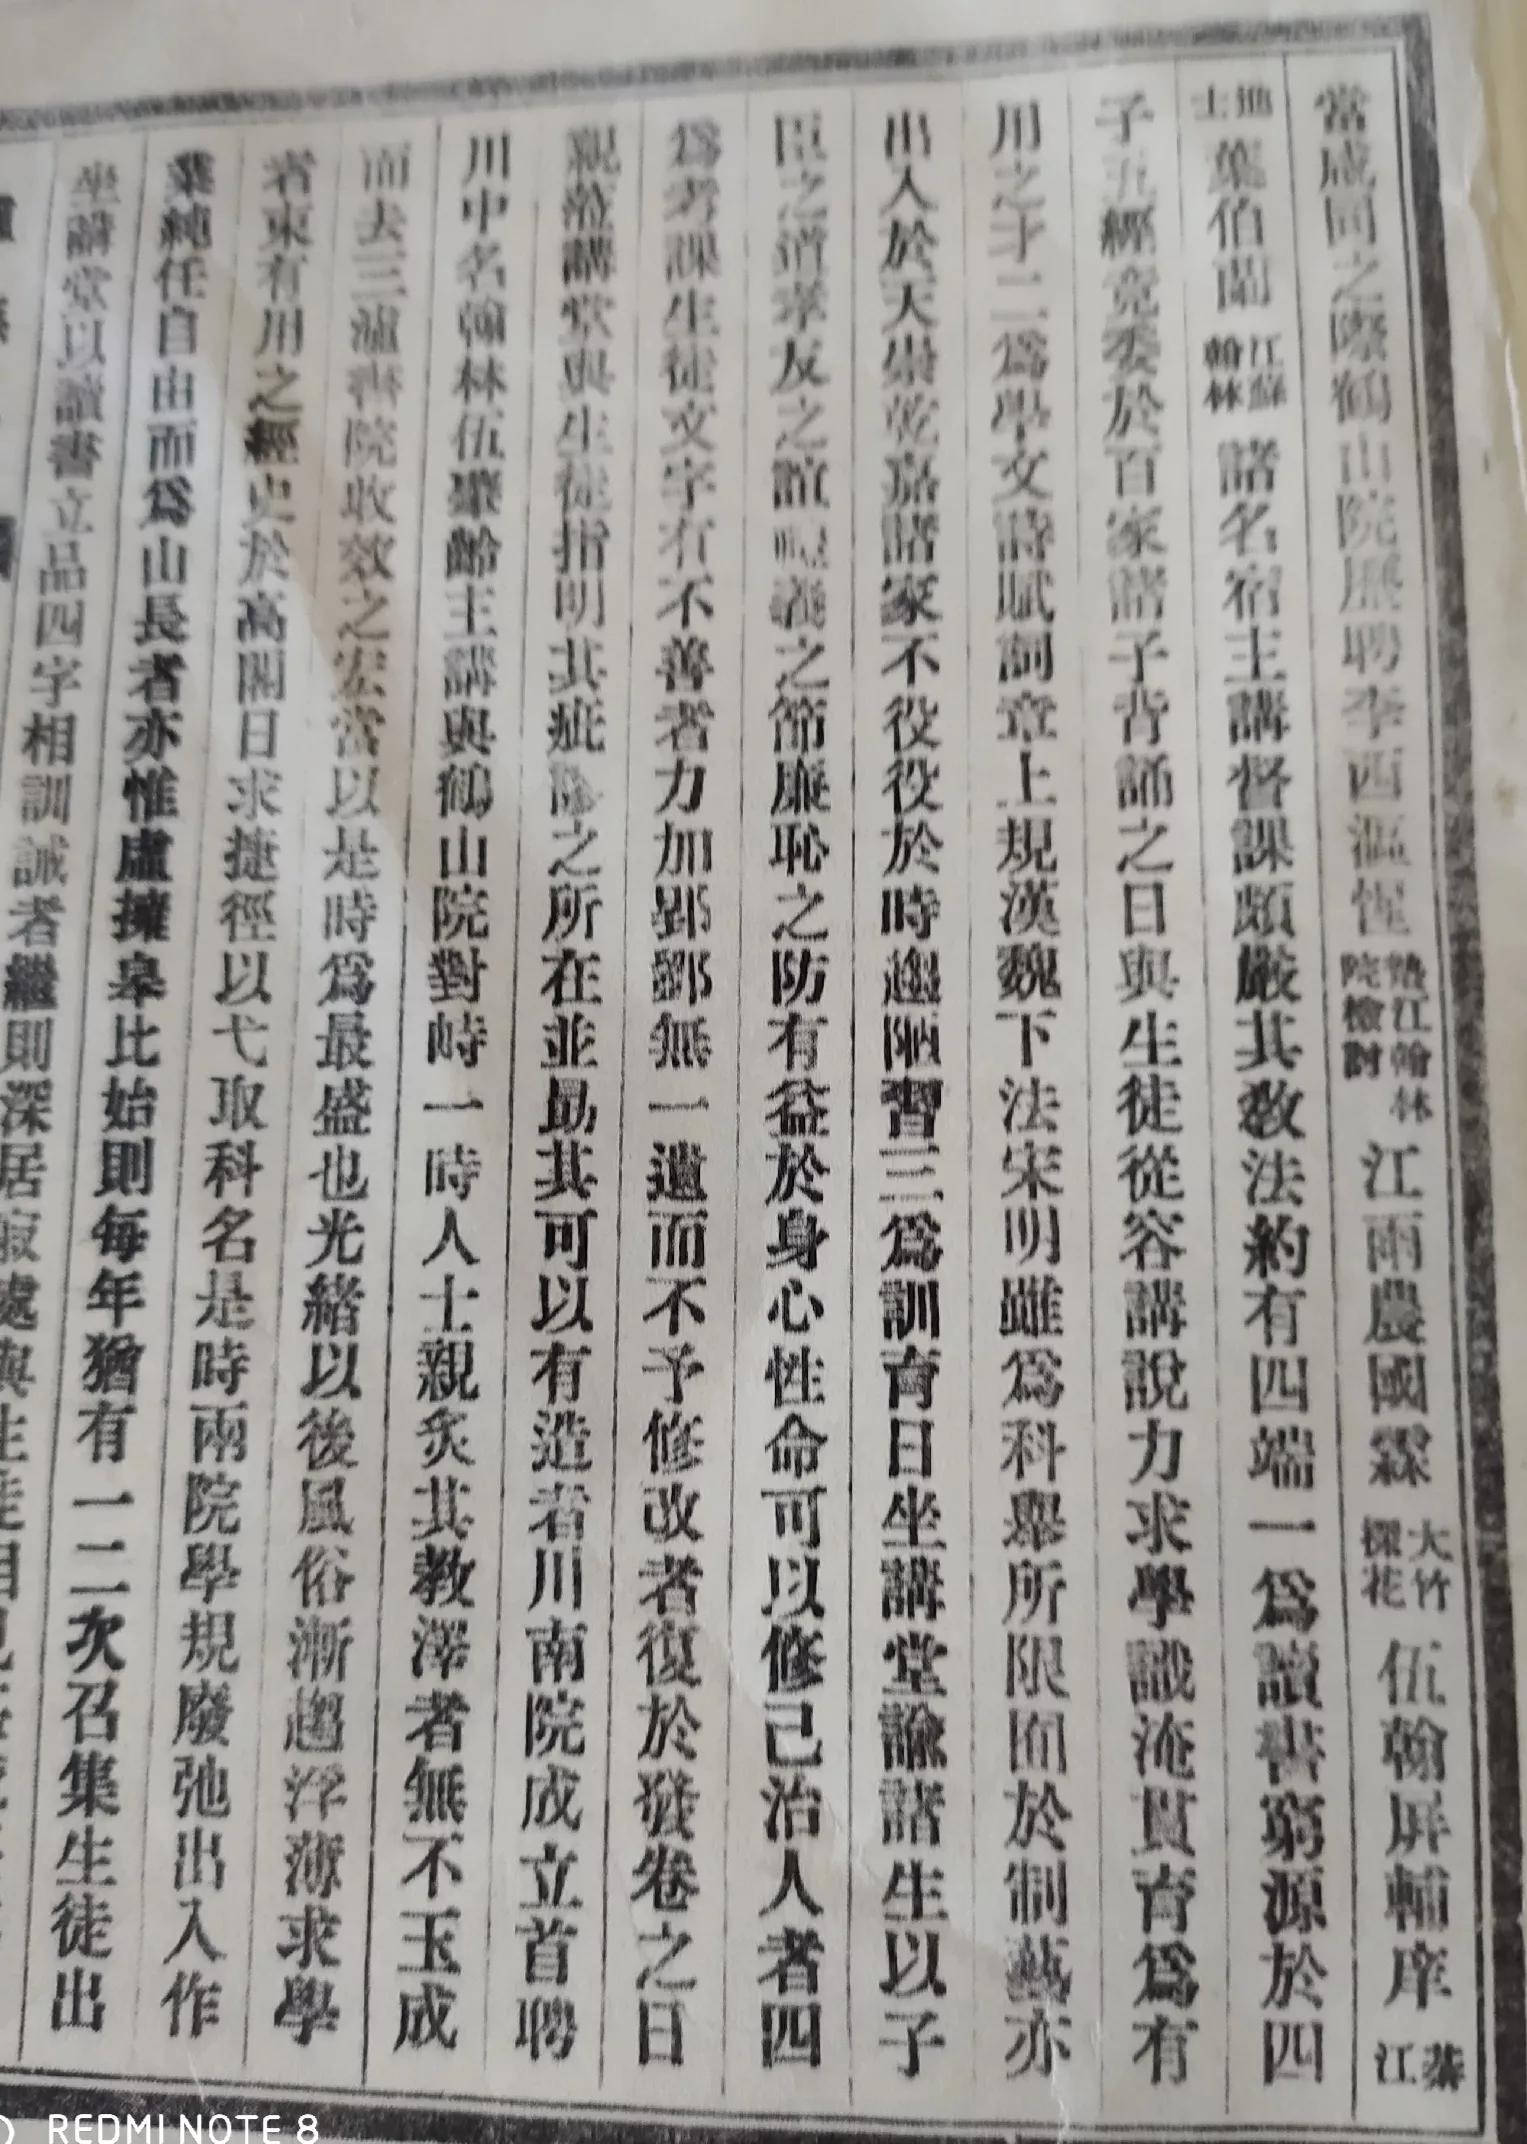 當咸同之際鶴山院歷聘李西漚惺墊江翰林院檢討江雨農國霖大竹探花伍翰屏輔庠綦江
進士葉伯蘭江蘇翰林諸名宿主講督課頗嚴其教法約有四端一為讀書窮源於四
子五經竟委於百家諸子背誦之日與生徒從容講說力求學識淹貫育為有
用之才二為學文詩賦詞章上規漢魏下法宋明雖為科舉所限囿於制藝亦
出入於天崇乾嘉諸家不役役於時趨陋習三為訓育日坐講堂諭諸生以子
臣之道孝友之誼 義之節廉恥之防有益於身心性命可以修己治人者四
為考課生徒文字有不善者力加郢鄧無一遺而不予修改者復於發卷之日
親蒞講堂與生徒指明其疵 之所在並勗其可以有造者川南院成立首聘
川中名翰林伍肇齡主講與鶴山院對峙一時人士親炙其教澤者無不玉成
而去三瀘書院收效之宏當以是時為最盛也光緒以後風俗漸趨浮薄求學
者束有用之經史於高閣日求捷徑以弋取科名是時兩院學規廢弛出入作
業純任自由而為山長者亦惟虛擁皋比始則每年猶有一二次召集生徒出
坐講堂以讀書立品四字相訓誡者繼則深居寂處與生徒相見
REDMI NOTE 8